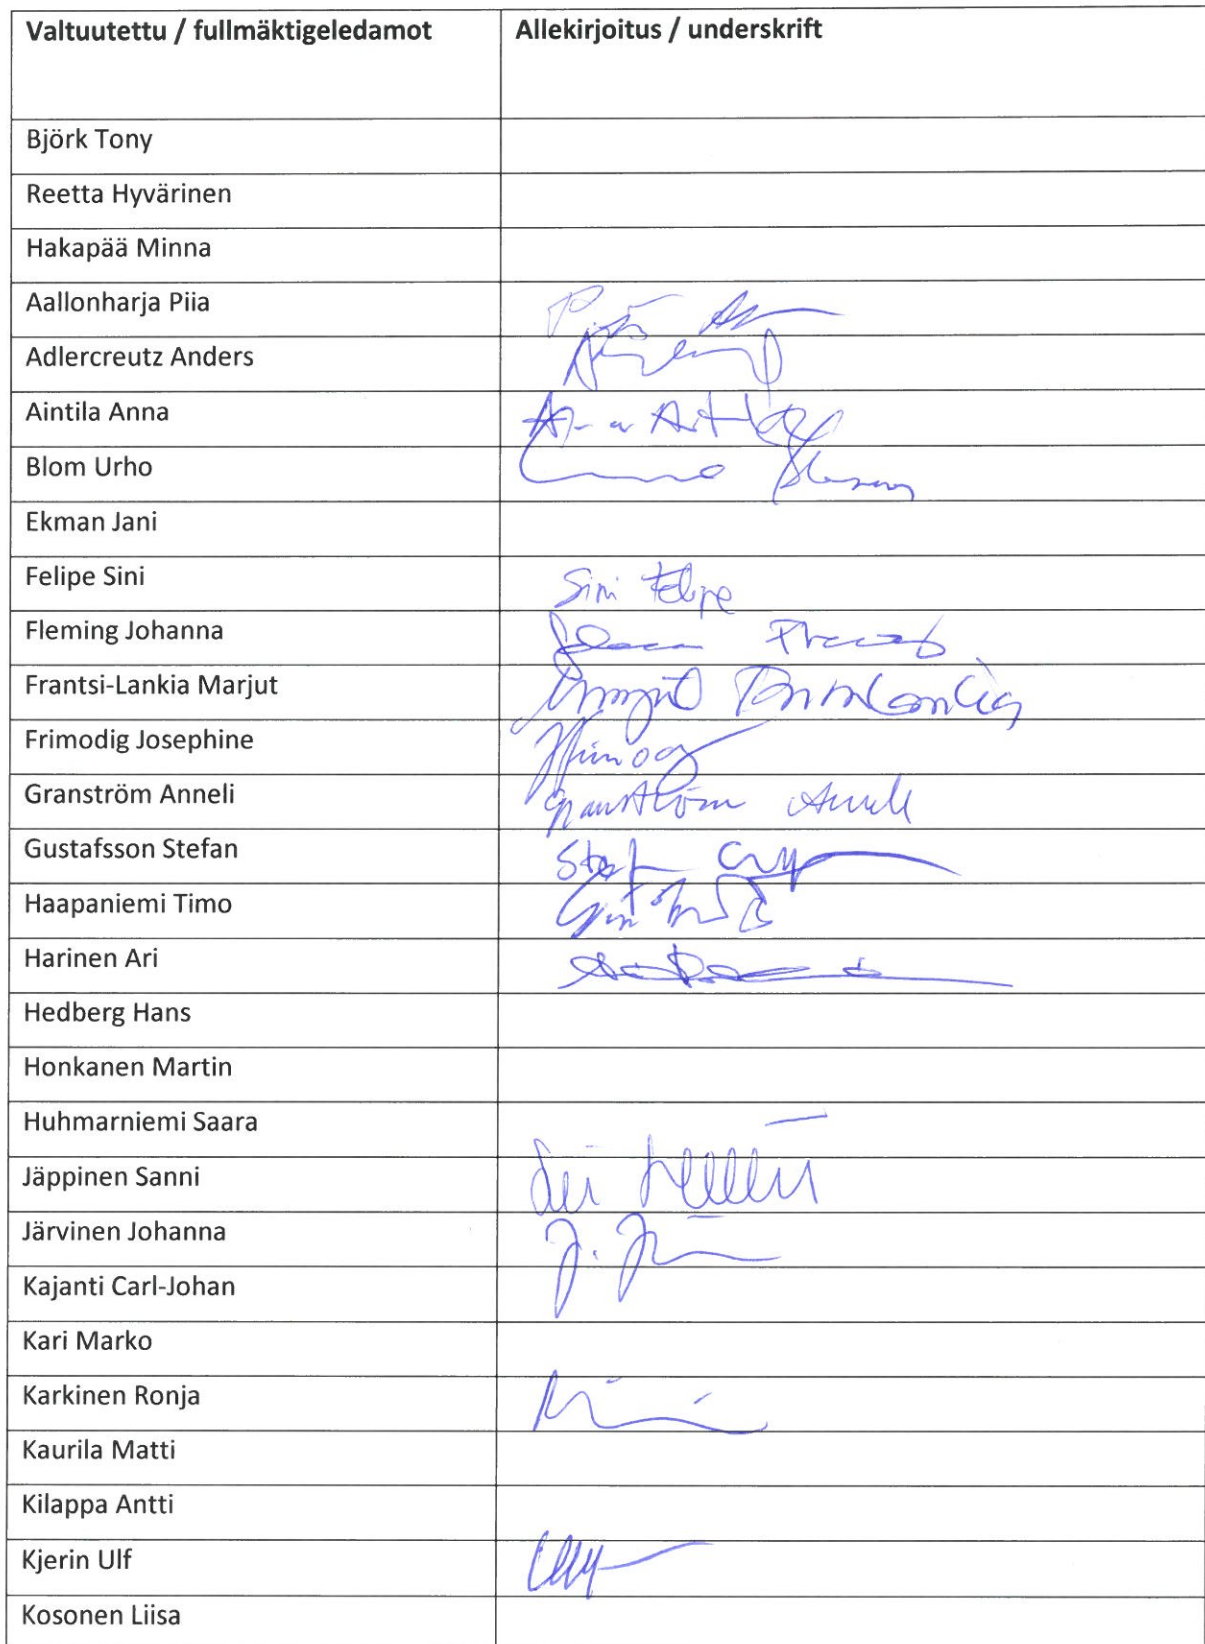 Valtuutettu / fullmäktigeledamot Allekirjoitus / underskrift
Björk Tony
Reetta Hyvärinen
Hakapää Minna
Aallonharja Piia
Adlercreutz Anders
Aintila Anna
Blom Urho
Ekman Jani
Felipe Sini Sini Felipe
Fleming Johanna
Frantsi-Lankia Marjut Marjut
Frimodig Josephine
Granström Anneli Granström Anneli
Gustafsson Stefan
Haapaniemi Timo
Harinen Ari
Hedberg Hans
Honkanen Martin
Huhmarniemi Saara
Jäppinen Sanni
Järvinen Johanna J.
Kajanti Carl-Johan
Kari Marko
Karkinen Ronja
Kaurila Matti
Kilappa Antti
Kjerin Ulf
Kosonen Liisa